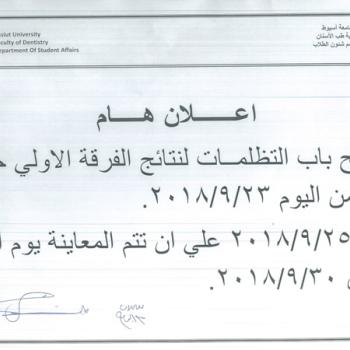 siut University
aculty of Dentistry
epartment Of Student Affairs
امعة أسيوط
ية طب الأسنان
م شئون الطلاب
اعـــلان هـــام
ح باب التظلمـات لنتائج الفرقة الاولي
ن اليوم ٢٠١٨/٩/٢٣.
٢٠١٨/٩/٢٥ علي ان تتم المعاينة يوم
٢٠١٨/٩/٣٠.